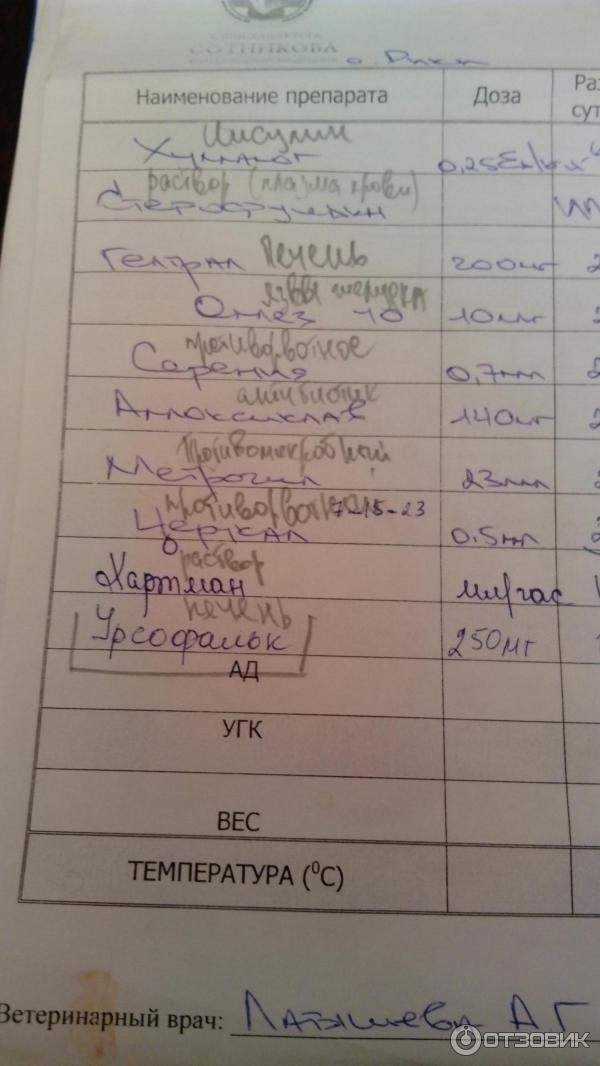 СОТНИКОВА
Наименование препарата Доза Раз
сут
Инсулин
Хумалог 0,25Ед/кг
раствор (плазма крови)
Стерофундин
Гептрал Печень 200мг 2
язвы желудка
Омез 10 10мг 2
противорвотное
Серения 0,7мл 2
антибиотик
Амоксиклав 140мг 2
Противомикробный
Метрогил 23мл 2
противорвотное 7-15-23
Церукал 0.5мл
раствор
Хартман мл/час
печень
Урсофальк 250мг
АД
УГК
ВЕС
ТЕМПЕРАТУРА (⁰С)
Ветеринарный врач: Латышева А Г
ОТЗОВИК